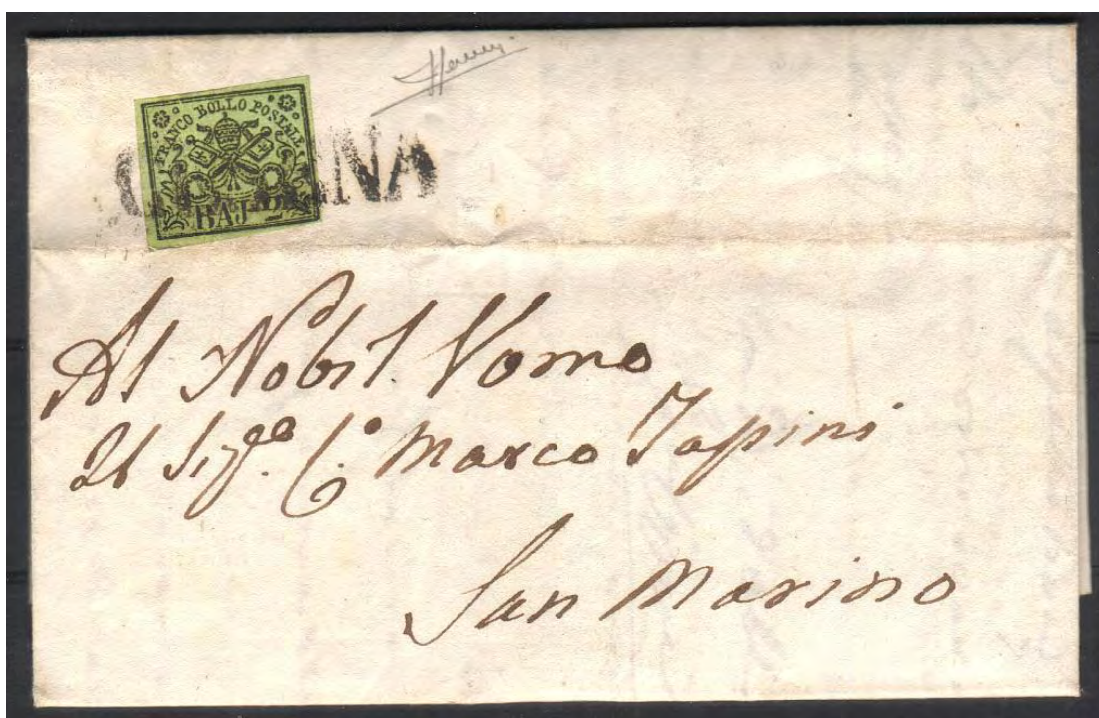 FRANCO BOLLO POSTALE
BAJ 2
Al Nobil. Vomo
Il Sigre. C.o Marco Tassini
San Marino